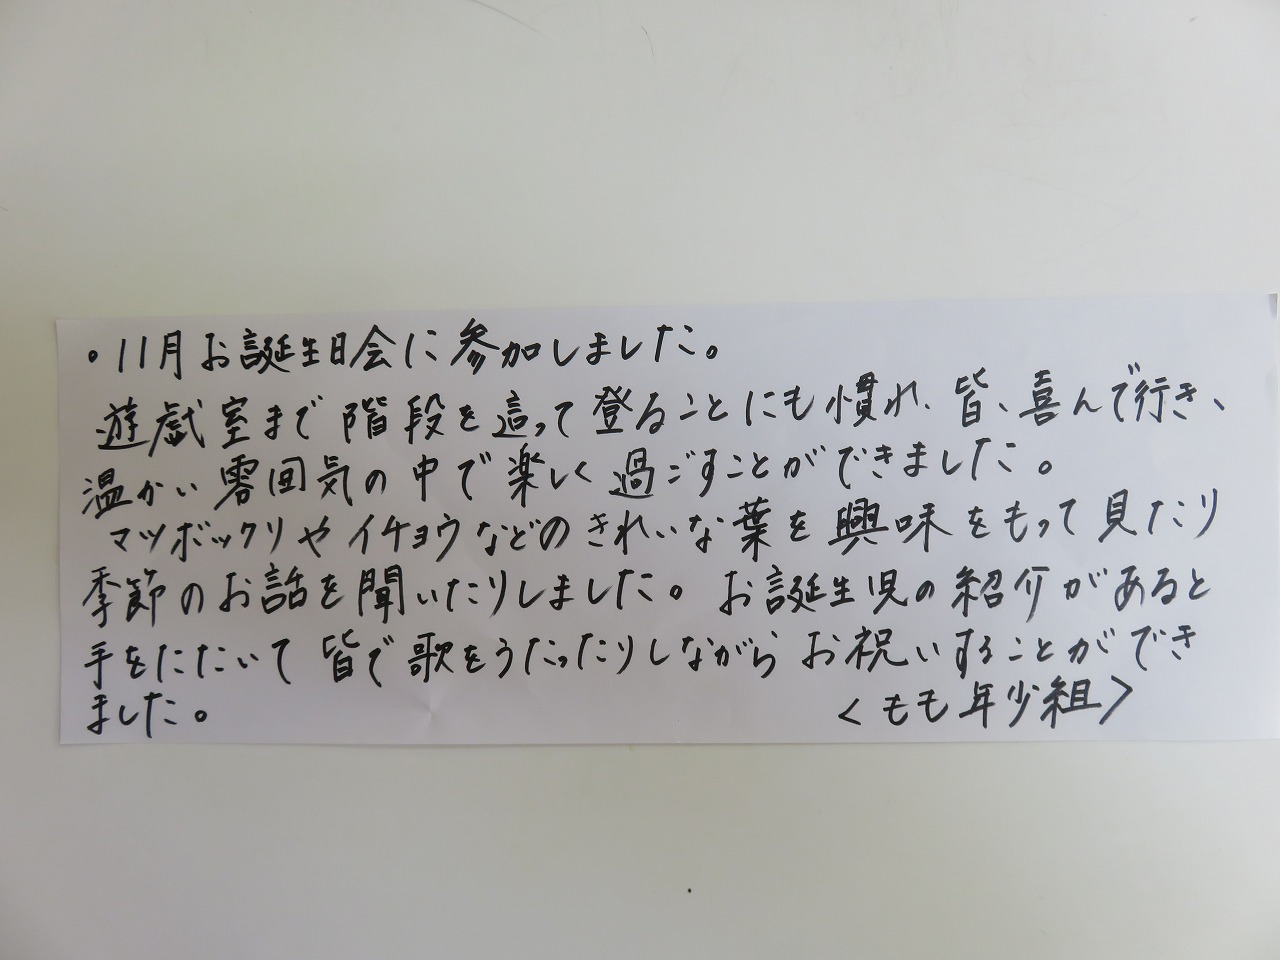 。11月お誕生日会に参加しました。
遊戯室まで階段を這って登ることにも慣れ、皆、喜んで行き、
温かい雰囲気の中で楽しく過ごすことができました。
マツボックリやイチョウなどのきれいな葉を興味をもって見たり
季節のお話を聞いたりしました。お誕生児の紹介があると
手をたたいて皆で歌をうたったりしながらお祝いすることができ
ました。
<もも年少組>